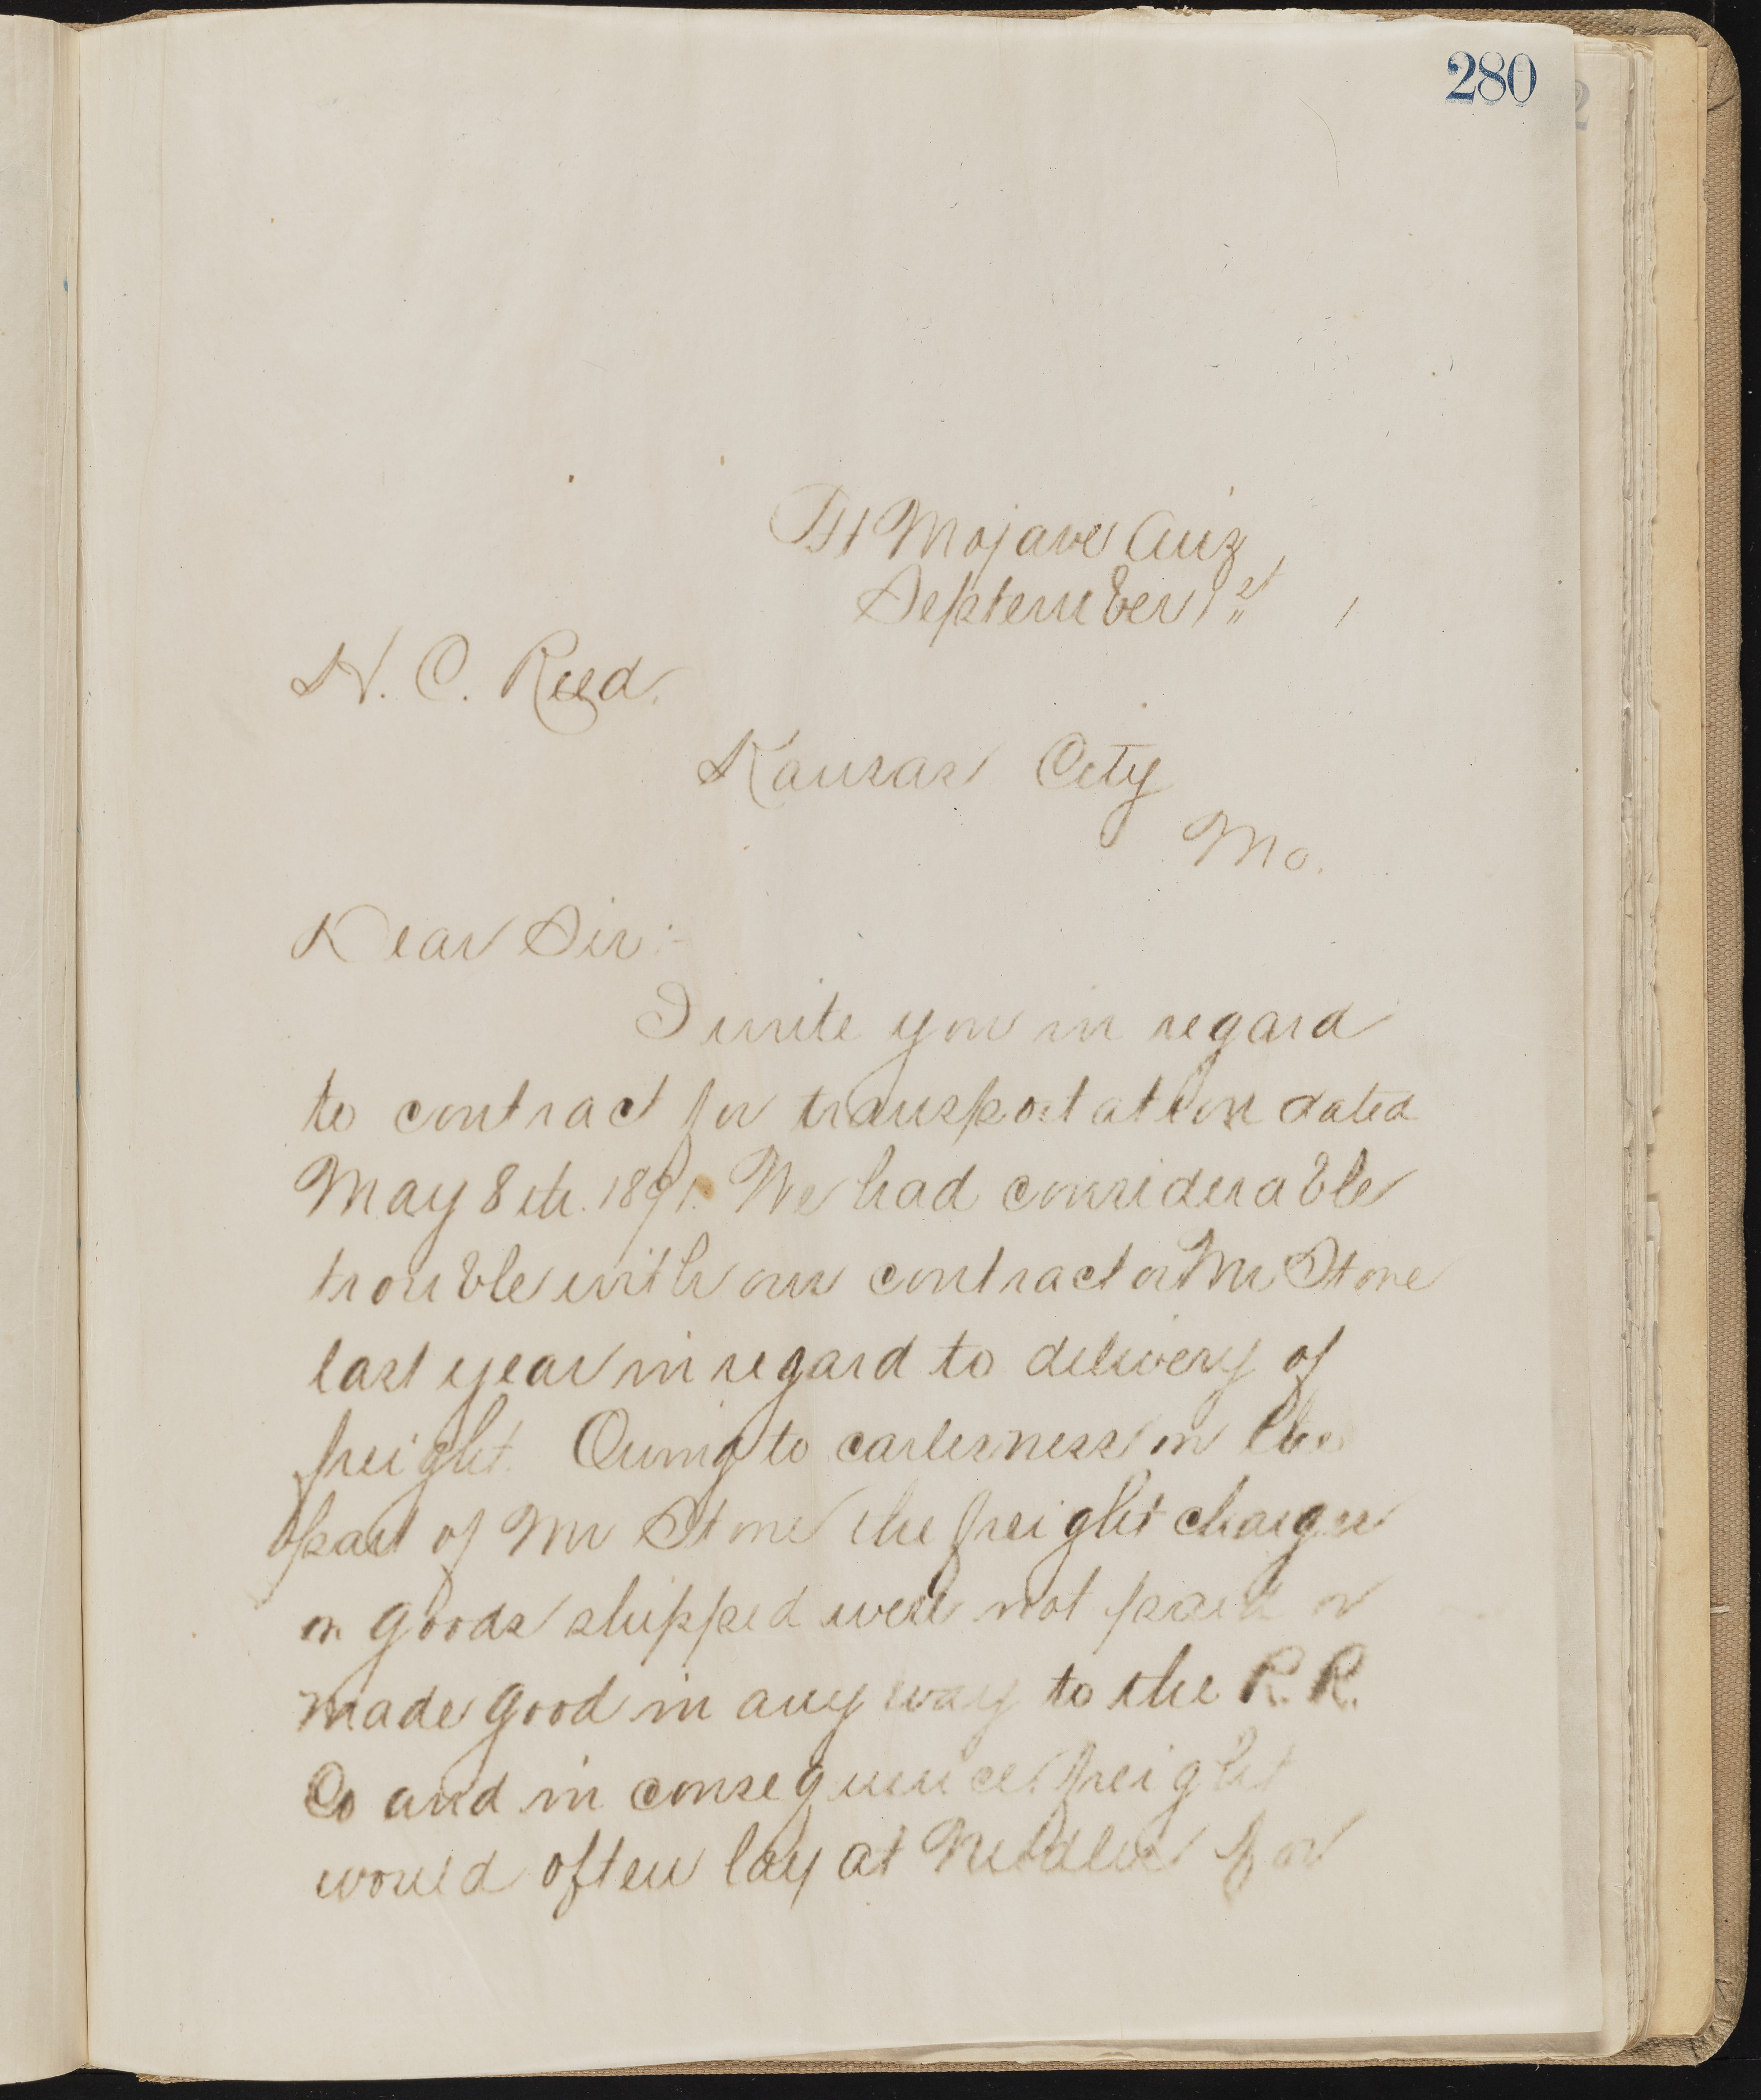 280
Ft Mojave Ariz
September 1st
H. C. Reed.
Kansas City
Mo.
Dear Sir:-
I write you in regard
to contract for transportation dated
May 8th. 1891. We had considerable
trouble with our contractor Mr Stone
last year in regard to delivery of
freight. Owing to carlesness on the
part of Mr Stone the freight charges
on goods shipped were not paid or
made good in any way to the R. R.
Co and in consequence freight
would often lay at Needles for